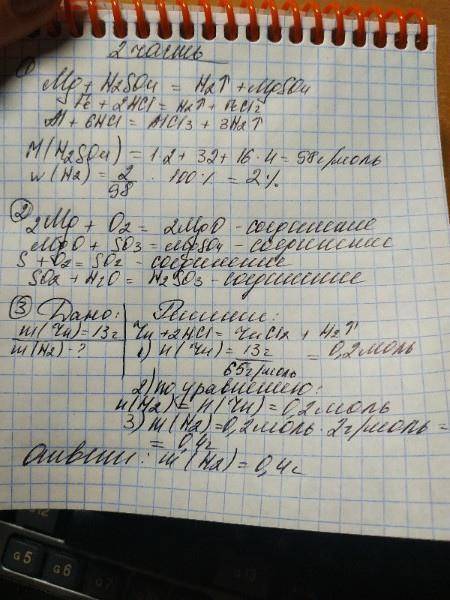 2 часть
① Mg + H2SO4 = H2↑ + MgSO4
Fe + 2HCl = H2↑ + FeCl2
Al + 6HCl = AlCl3 + 3H2↑
M(H2SO4) = 1·2 + 32 + 16·4 = 98 г/моль
w(H2) = 2/98 · 100% = 2%
② 2Mg + O2 = 2MgO - соединение
MgO + SO3 = MgSO4 - соединение
S + O2 = SO2 - соединение
SO2 + H2O = H2SO3 - соединение
③ Дано: Решение:
m(Zn) = 13г Zn + 2HCl = ZnCl2 + H2↑
m(H2) - ? 1) n(Zn) = 13г / 65г/моль = 0,2 моль
2) по уравнению:
n(H2) = n(Zn) = 0,2 моль
3) m(H2) = 0,2 моль · 2г/моль =
= 0,4г
Ответ: m(H2) = 0,4г
G12
G5
G6